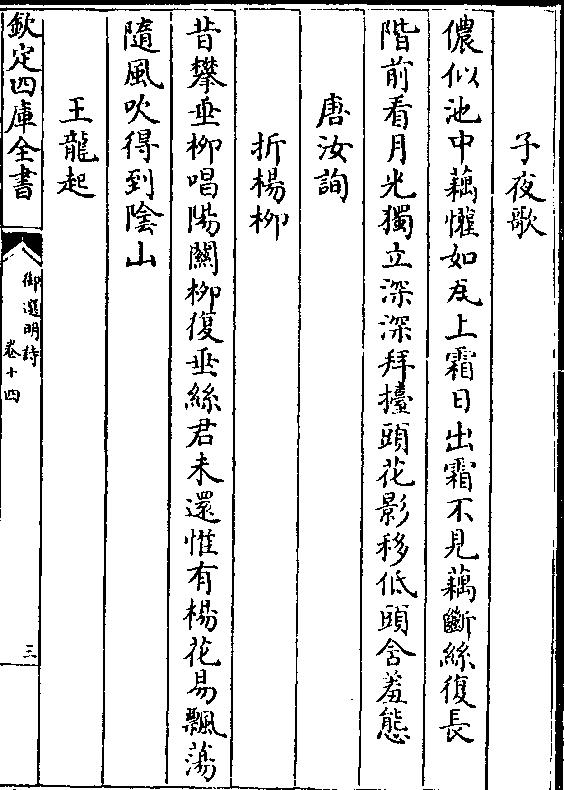 子夜歌
儂似池中藕懽如瓦上霜日出霜不見藕斷絲復長
階前看月光獨立深深拜擡頭花影移低頭含羞態
唐汝詢
折楊柳
昔攀垂柳唱陽關柳復垂絲君未還惟有楊花易飄蕩
隨風吹得到陰山
王龍起
欽定四庫全書
御選明詩
卷十四
三